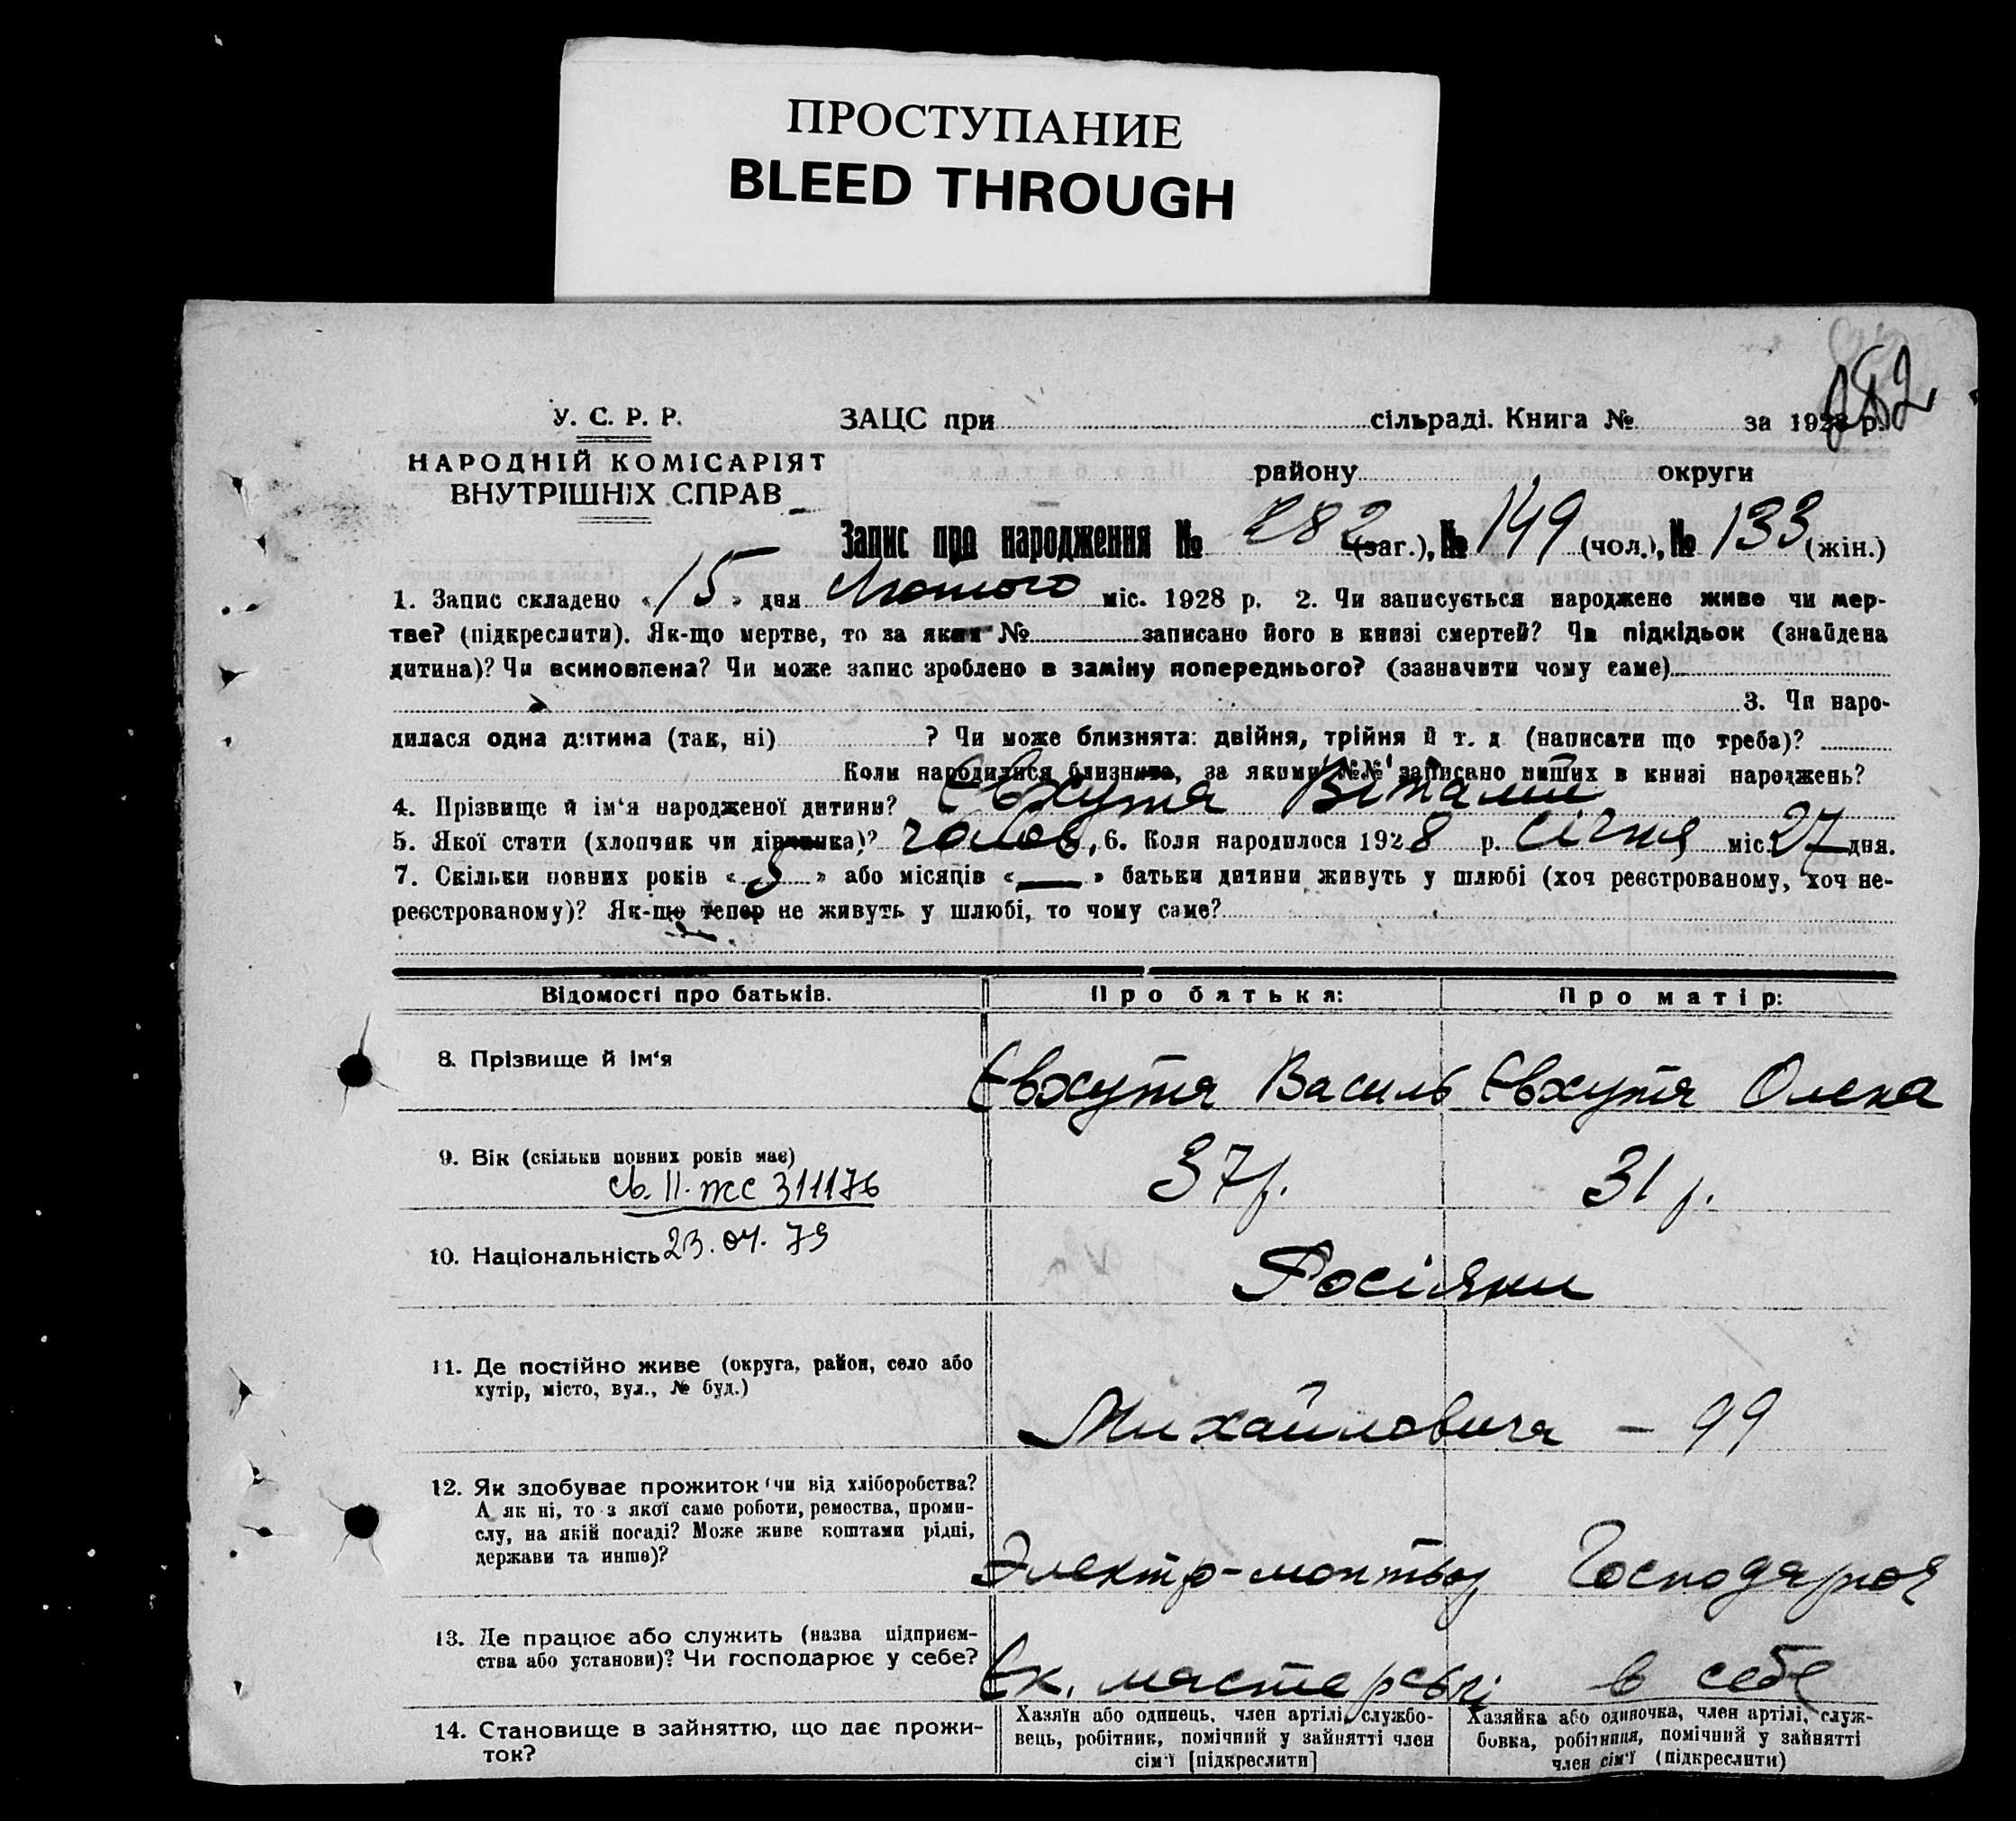 ПРОСТУПАНИЕ
BLEED THROUGH
282
У. С. Р. Р. ЗАЦС при сільраді. Книга № за 1928 р.
НАРОДНІЙ КОМІСАРІЯТ
району округи
ВНУТРІШНІХ СПРАВ
Запис про народження № 282 (заг.), № 149 (чол.), № 133 (жін.)
1. Запис складено « 15 » дня Лютого міс. 1928 р. 2. Чи записується народжене живе чи мер-
тве? (підкреслити). Як-що мертве, то за яким № записано його в книзі смертей? Чи підкідьок (знайдена
дитина)? Чи всиновлена? Чи може запис зроблено в заміну попереднього? (зазначити чому саме)
3. Чи наро-
дилася одна дитина (так, ні) ? Чи може близнята: двійня, трійня й т. д (написати що треба)?
Коли народилися близнята, за якими №№ записано инших в книзі народжень?
4. Прізвище й ім‘я народженої дитини? Євхутя Віталий
5. Якої стати (хлопчик чи дівчинка)? чолов, 6. Коли народилося 1928 р. січня міс. 27 дня.
7. Скільки повних років « » або місяців « — » батьки дитини живуть у шлюбі (хоч реєстрованому, хоч не-
реєстрованому)? Як-що тепер не живуть у шлюбі, то чому саме?
Відомості про батьків. Про батька: Про матір:
8. Прізвище й ім‘я Євхутя Василь Євхутя Олена
9. Вік (скільки повних років має) 37 р. 31 р.
св. II-ЖС 311176
10. Національність 23.04.79 Росіяни
11. Де постійно живе (округа, район, село або
хутір, місто, вул., № буд.)
Михайловича – 99
12. Як здобуває прожиток (чи від хліборобства?
А як ні, то з якої саме роботи, ремества, проми-
слу, на якій посаді? Може живе коштами рідні,
держави та инше)?
Электр-монтьор Господарює
13. Де працює або служить (назва підприєм-
ства або установи)? Чи господарює у себе?
Ек. мастерські в себе
14. Становище в зайняттю, що дає прожи-
ток?
Хазяїн або одинець, член артілі, службо-
вець, робітник, помічний у зайнятті член
сім‘ї [підкреслити]
Хазяйка або одиночка, член артілі, служ-
бовка, робітниця, помічний у зайнятті
член сім‘ї (підкреслити)